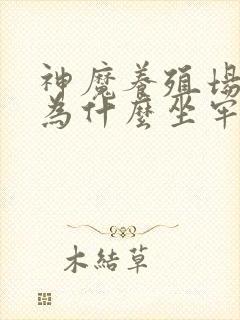 神魔養殖場
為什麼坐牢
木結草